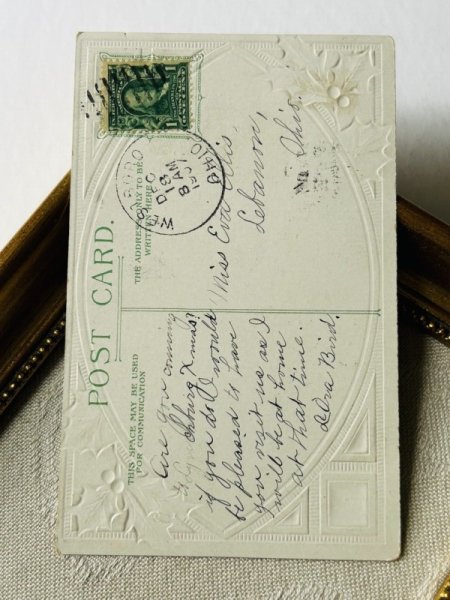 POST CARD.
THIS SPACE MAY BE USED
FOR COMMUNICATION
THE ADDRESS ONLY TO BE
WRITTEN HERE
DEC
18
8 AM
OHIO
Are you coming
to Lynchburg Xmas?
if you do I would
be pleased to have
you visit us as I
will be at home
at that time.
Ora Bird.
Miss Eva
Lebanon,
Ohio.